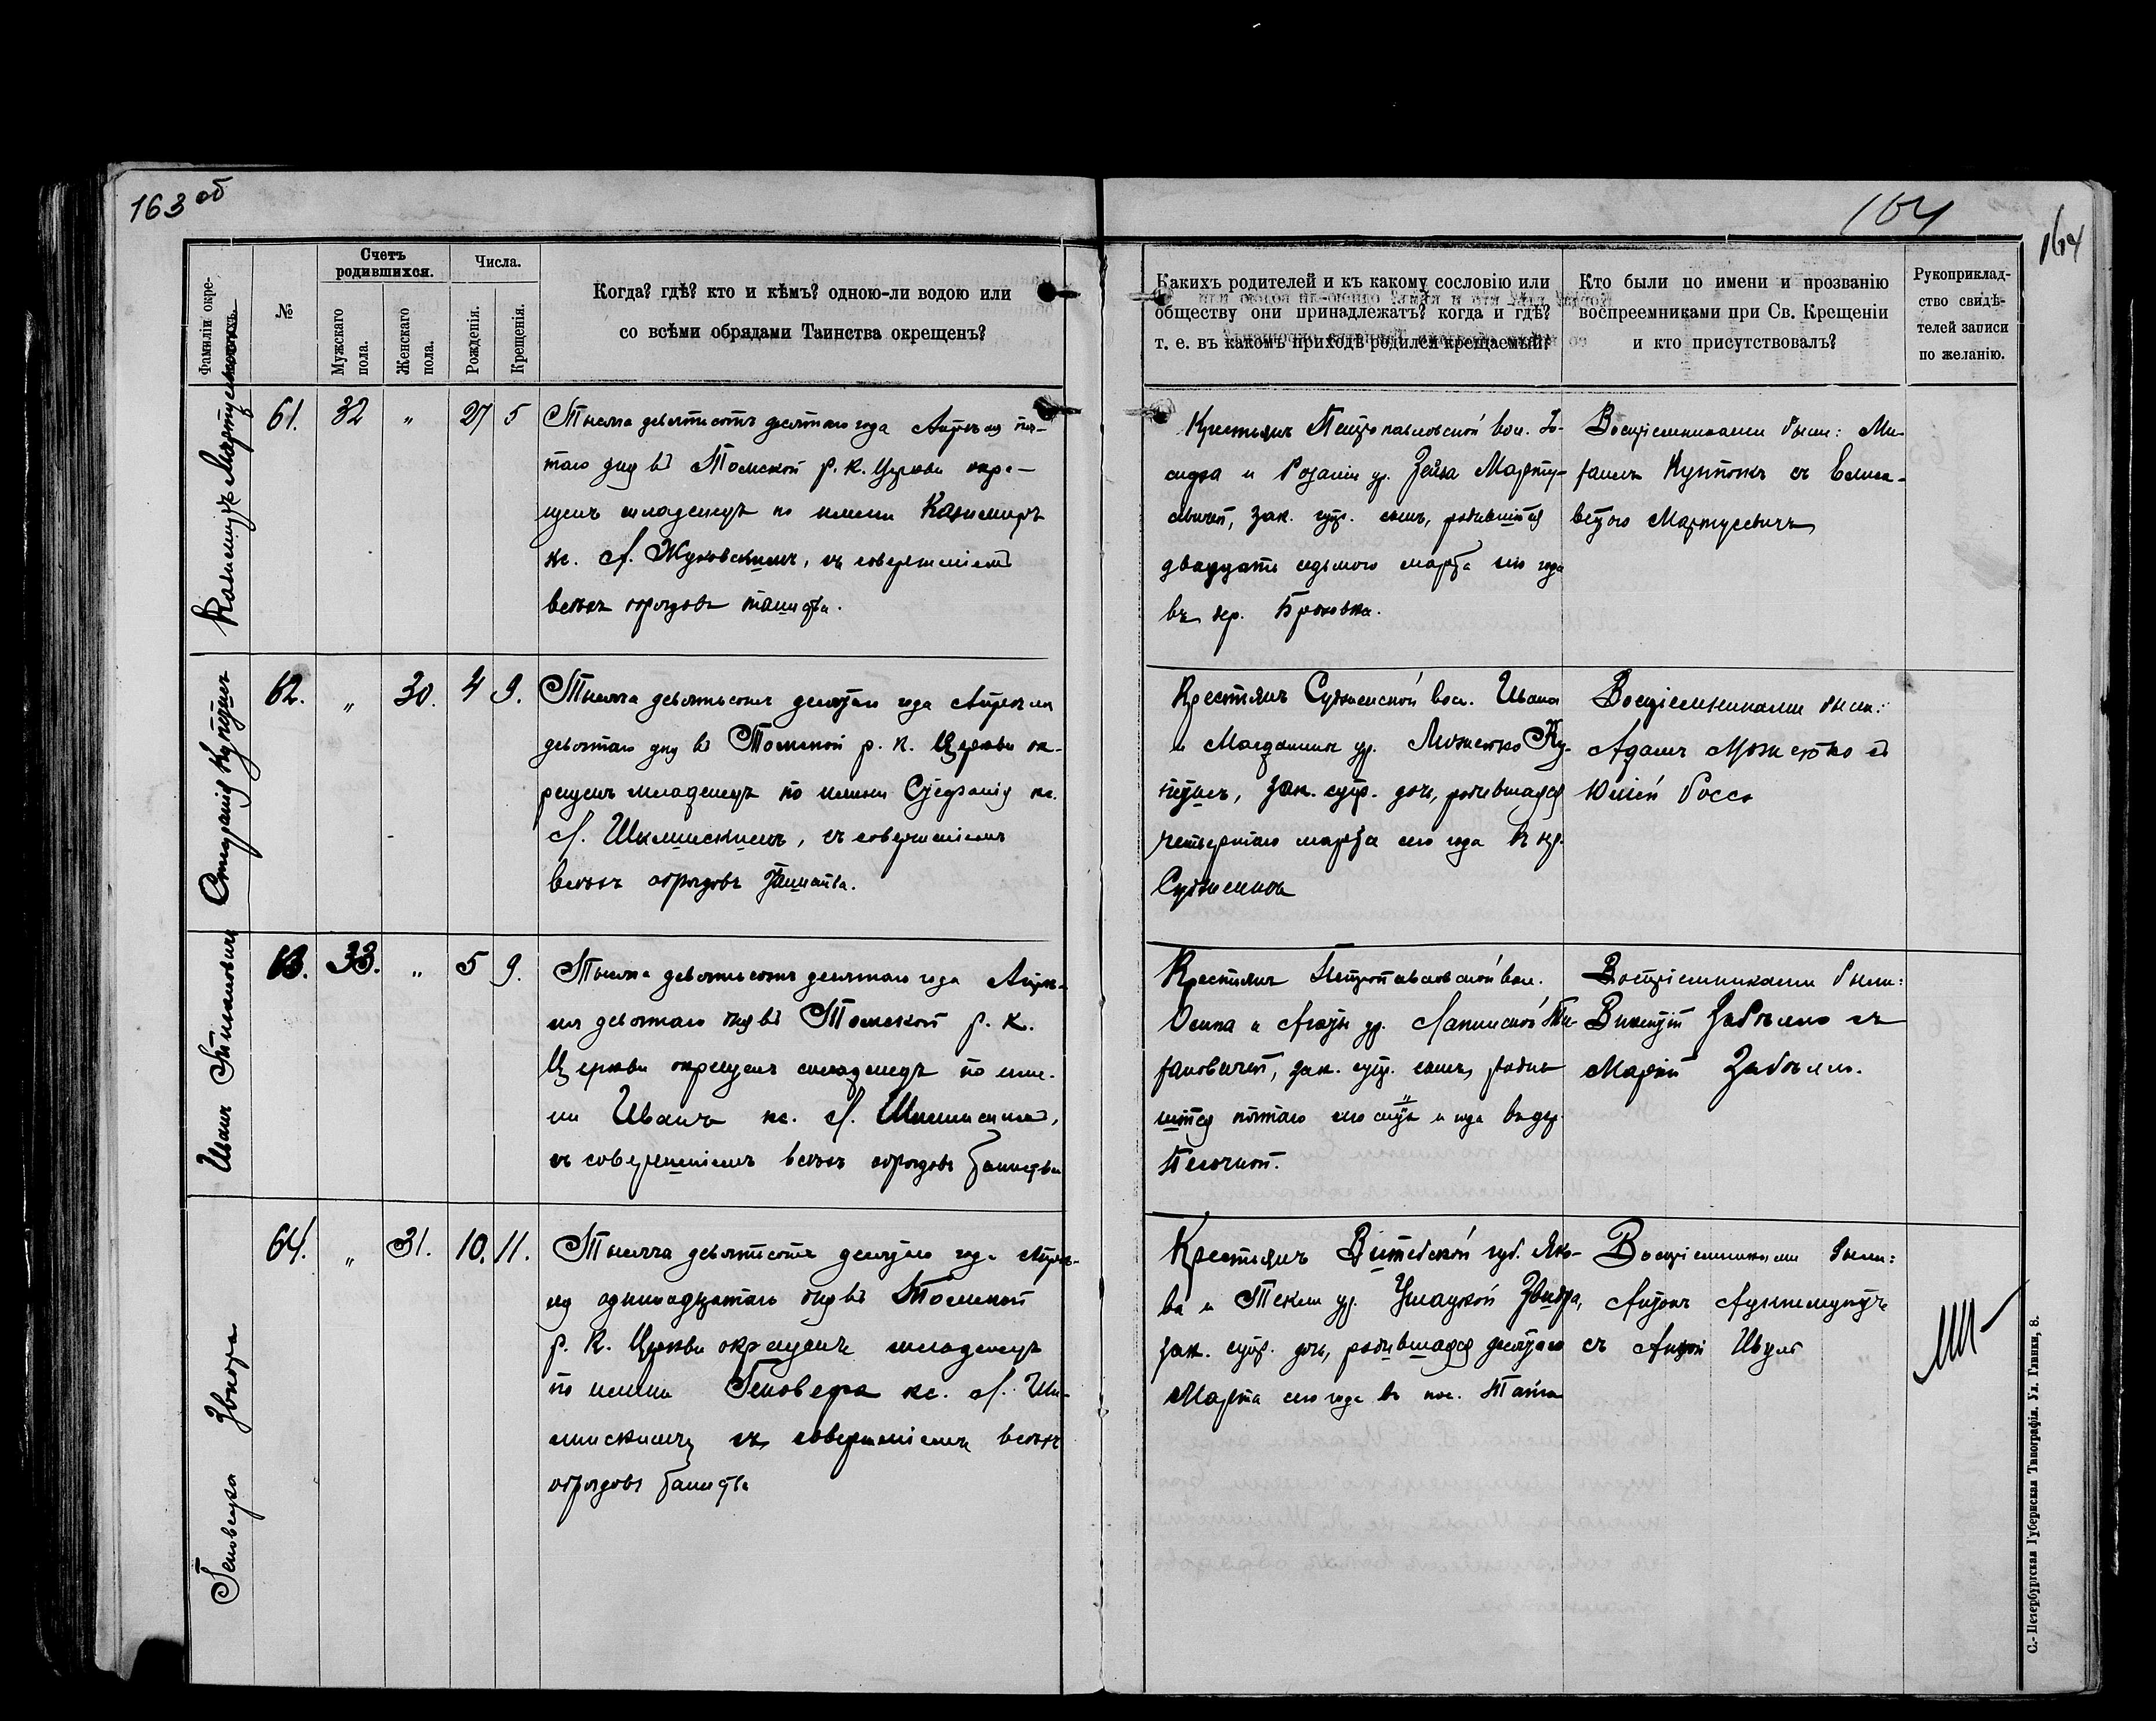 163 об
164
164
Фамиліи окре-
щенныхъ.
№
Счетъ
родившихся.
Мужскаго
пола.
Женскаго
пола.
Числа.
Рожденія.
Крещенія.
Когда? гдѣ? кто и кѣмъ? одною-ли водою или
со всѣми обрядами Таинства окрещенъ?
Какихъ родителей и къ какому сословію или
обществу они принадлежатъ? когда и гдѣ?
т. е. въ какомъ приходѣ родился крещаемый?
Кто были по имени и прозванію
воспреемниками при Св. Крещеніи
и кто присутствовалъ?
Рукоприклад-
ство свидѣ-
телей записи
по желанію.
Казимиръ Мартусевичъ
61. 32 " 27 5
Тысяча девятьсотъ десятаго года Апрѣля пя-
таго дня въ Томской р. к. Церкви окре-
щенъ младенецъ по имени Казимиръ
кс. А. Жуковскимъ, съ совершеніемъ
всѣхъ обрядовъ таинства.
Крестьянъ Петропавловской вол. Іо-
сифа и Розаліи ур. Марту-
севичей, зак. супр. сынъ, родившійся
двадцать седьмого марта сего года
въ дер.
Воспріемниками были: Ми-
хаилъ съ Елиса-
ветою Мартусевичъ
Стефанія
62. " 30. 4 9.
Тысяча девятьсотъ десятаго года Апрѣля
девятаго дня въ Томской р. к. Церкви ок-
рещенъ младенецъ по имени Стефанія кс.
съ совершеніемъ
всѣхъ обрядовъ Таинства.
Крестьянъ Судженской вол. Ивана
и Магдалины ур. Можейко
зак. супр. дочь, родившаяся
четвертаго марта сего года въ дер.
Судженка
Воспріемниками были:
Адамъ Можейко съ
Юліей Россо
Иванъ
63. 33. " 5 9.
Тысяча девятьсотъ десятаго года Апрѣ-
ля девятаго дня въ Томской р. к.
Церкви окрещенъ младенецъ по име-
ни Иванъ кс.
съ совершеніемъ всѣхъ обрядовъ таинства
Крестьянъ Петропавловской вол.
Осипа и Агаты ур.
зак. супр. сынъ, родив-
шійся пятаго сего и года въ дер.
Воспріемниками были:
Викентій Забѣлло съ
Маріей Забѣлло.
Геновефа Звидра
64. " 31. 10. 11.
Тысяча девятьсотъ десятаго года Апрѣ-
ля одиннадцатаго дня въ Томской
р. к. Церкви окрещенъ младенецъ
по имени Геновефа кс.
съ совершеніемъ всѣхъ
обрядовъ таинства
Крестьянъ Витебской губ. Яко-
ва и Теклы ур. Звидра,
зак. супр. дочь, родившаяся десятаго
Марта сего года въ пос. Тайга
Воспріемниками были:
Антонъ
съ Анной
С.-Петербургская Губернская Типографія. Ул. Глинки, 8.